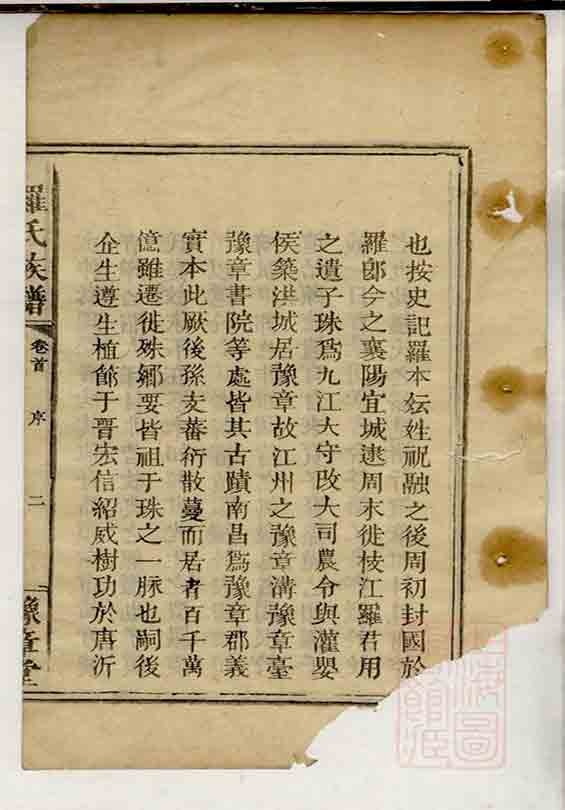 也按史記羅本妘姓祝融之後周初封國於
羅郎今之襄陽宜城逮周末徙枝江羅君用
之遺子珠爲九江大守改大司農令與灌嬰
侯築洪城居豫章故江州之豫章溝豫章臺
豫章書院等處皆其古蹟南昌爲豫章郡義
實本此厥後孫支蕃衍散蔓而居者百千萬
億雖遷徙殊鄉要皆祖于珠之一脉也嗣後
企生遵生植節于晋宏信紹威樹功於唐沂
羅氏族譜
卷首
序
二
豫章堂